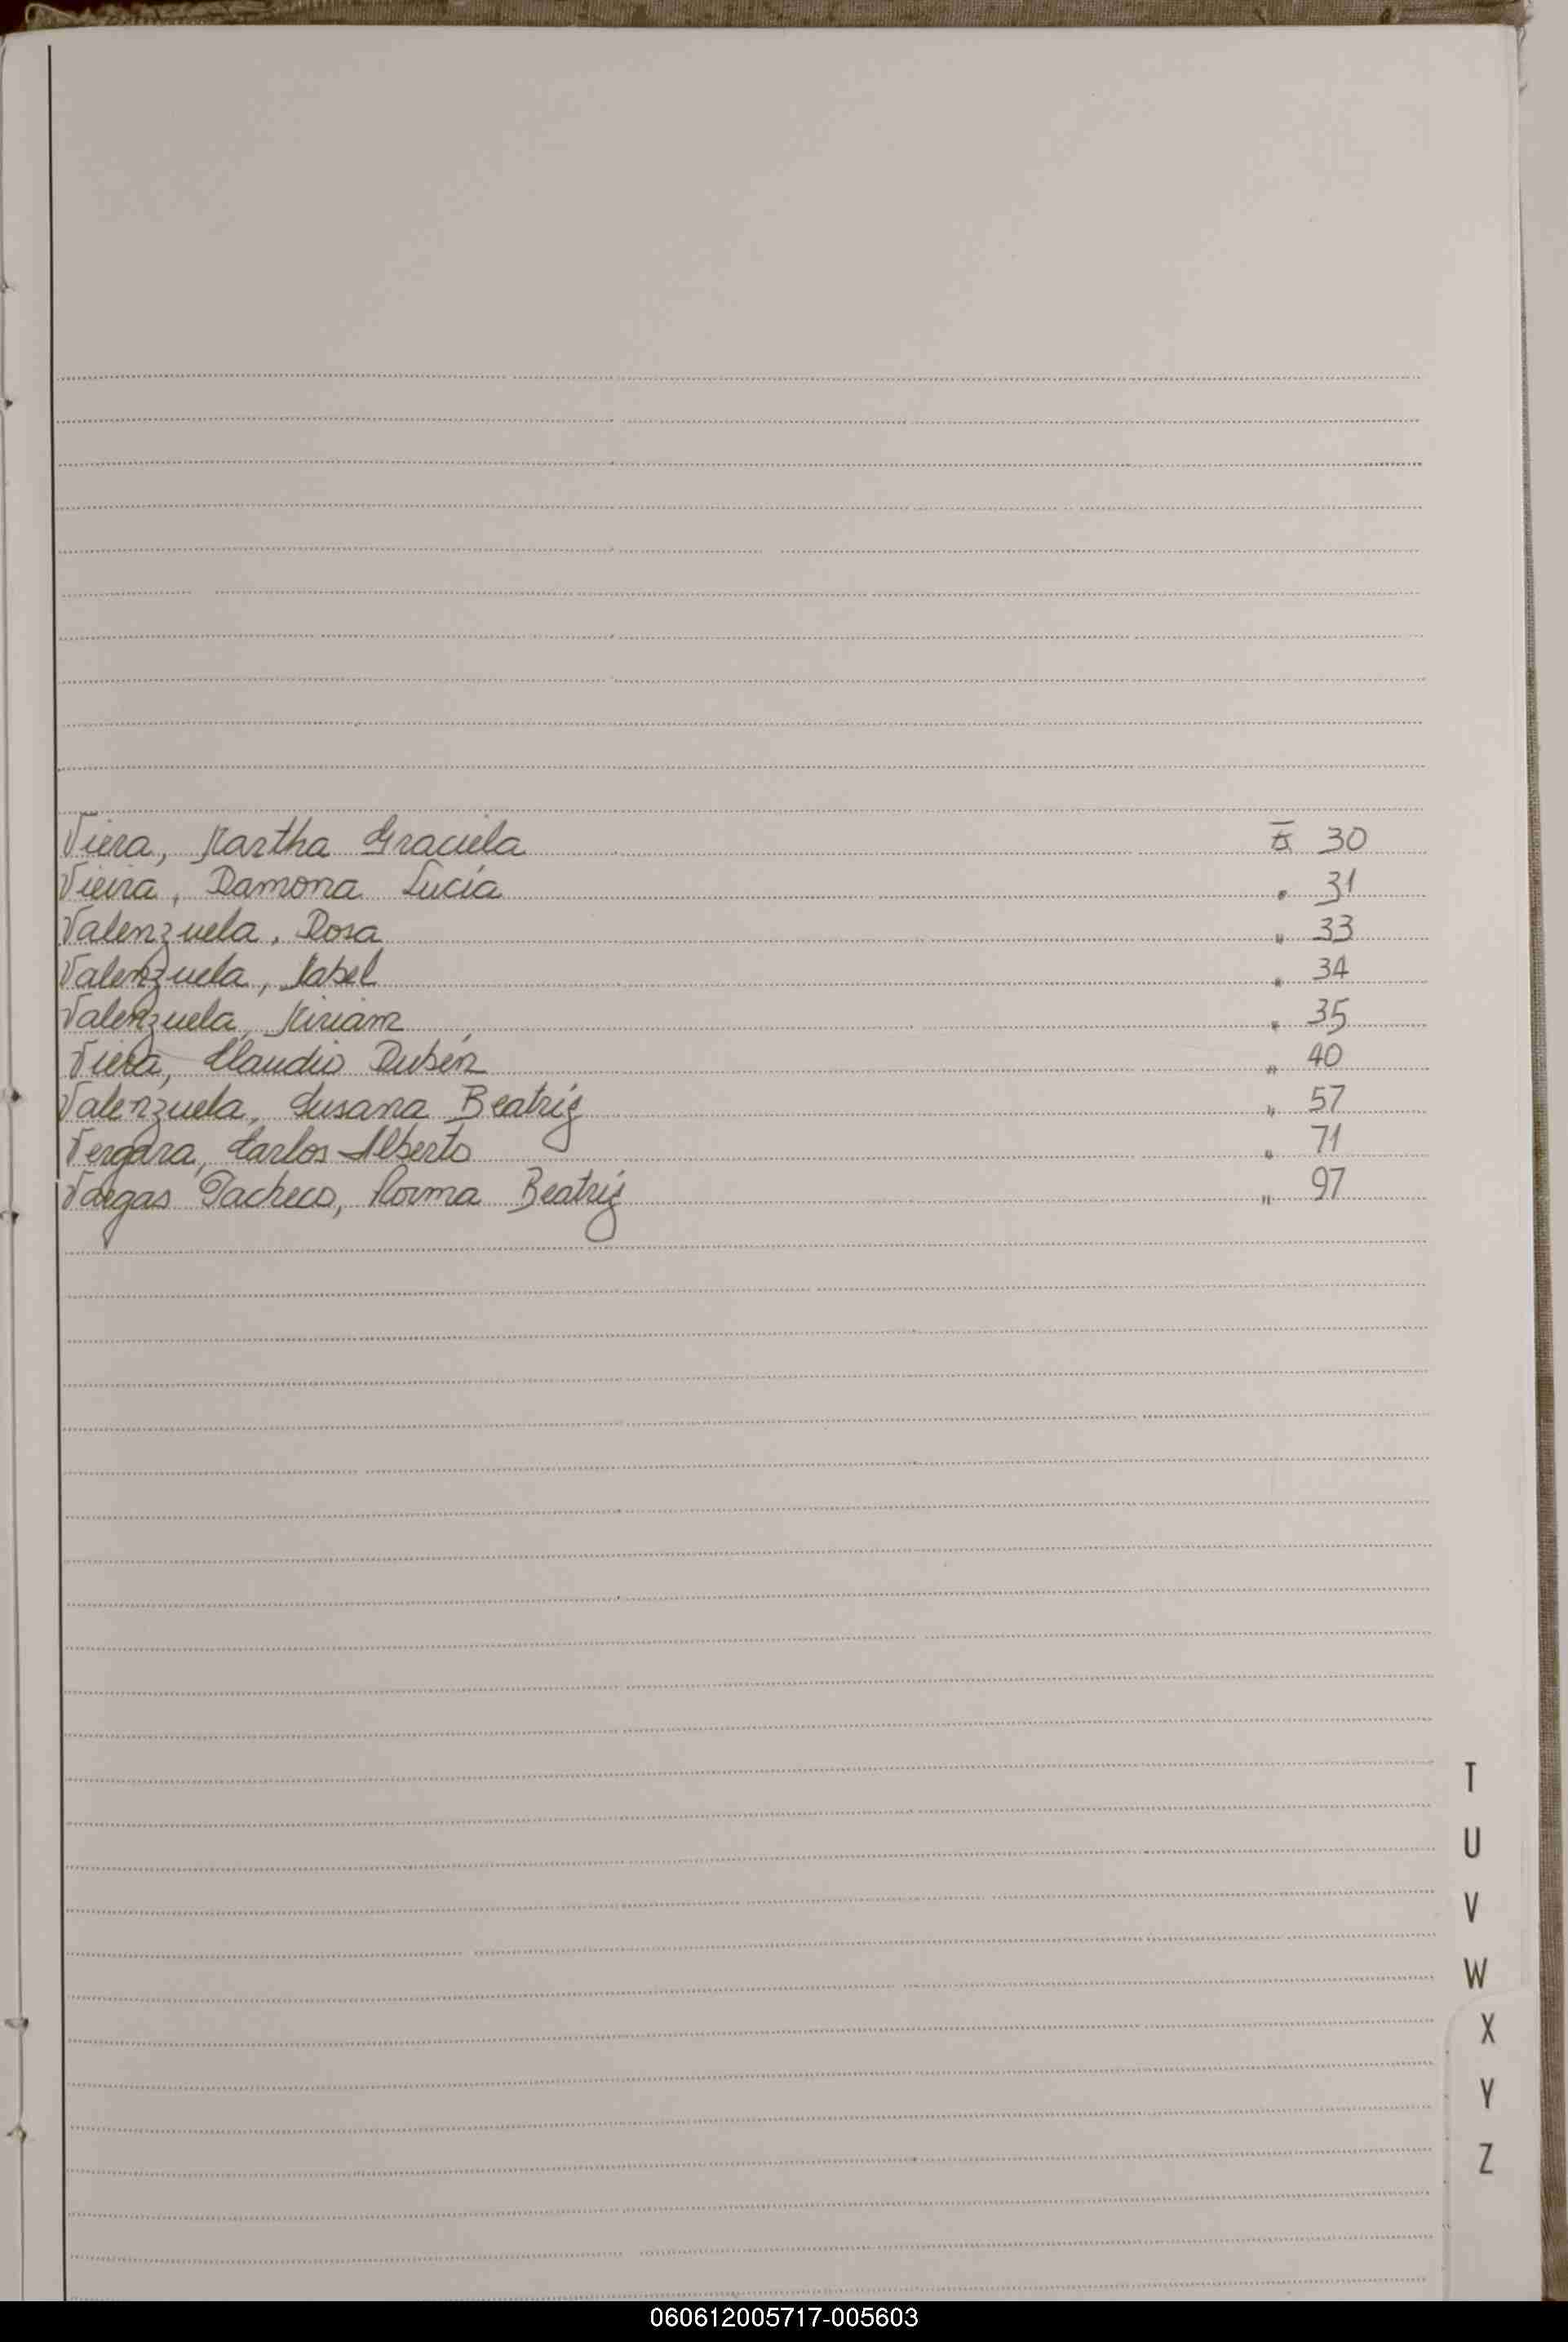 Viera, Martha Graciela 30
Vieira, Ramona Lucía " 31
Valenzuela, Rosa " 33
Valenzuela, Isabel " 34
Valenzuela, Miriam " 35
Viera, Claudio Rubén " 40
Valenzuela, Susana Beatriz " 57
Vergara, Carlos Alberto " 71
Vargas Pacheco, Norma Beatriz " 97
T
U
V
W
X
Y
Z
060612005717-005603